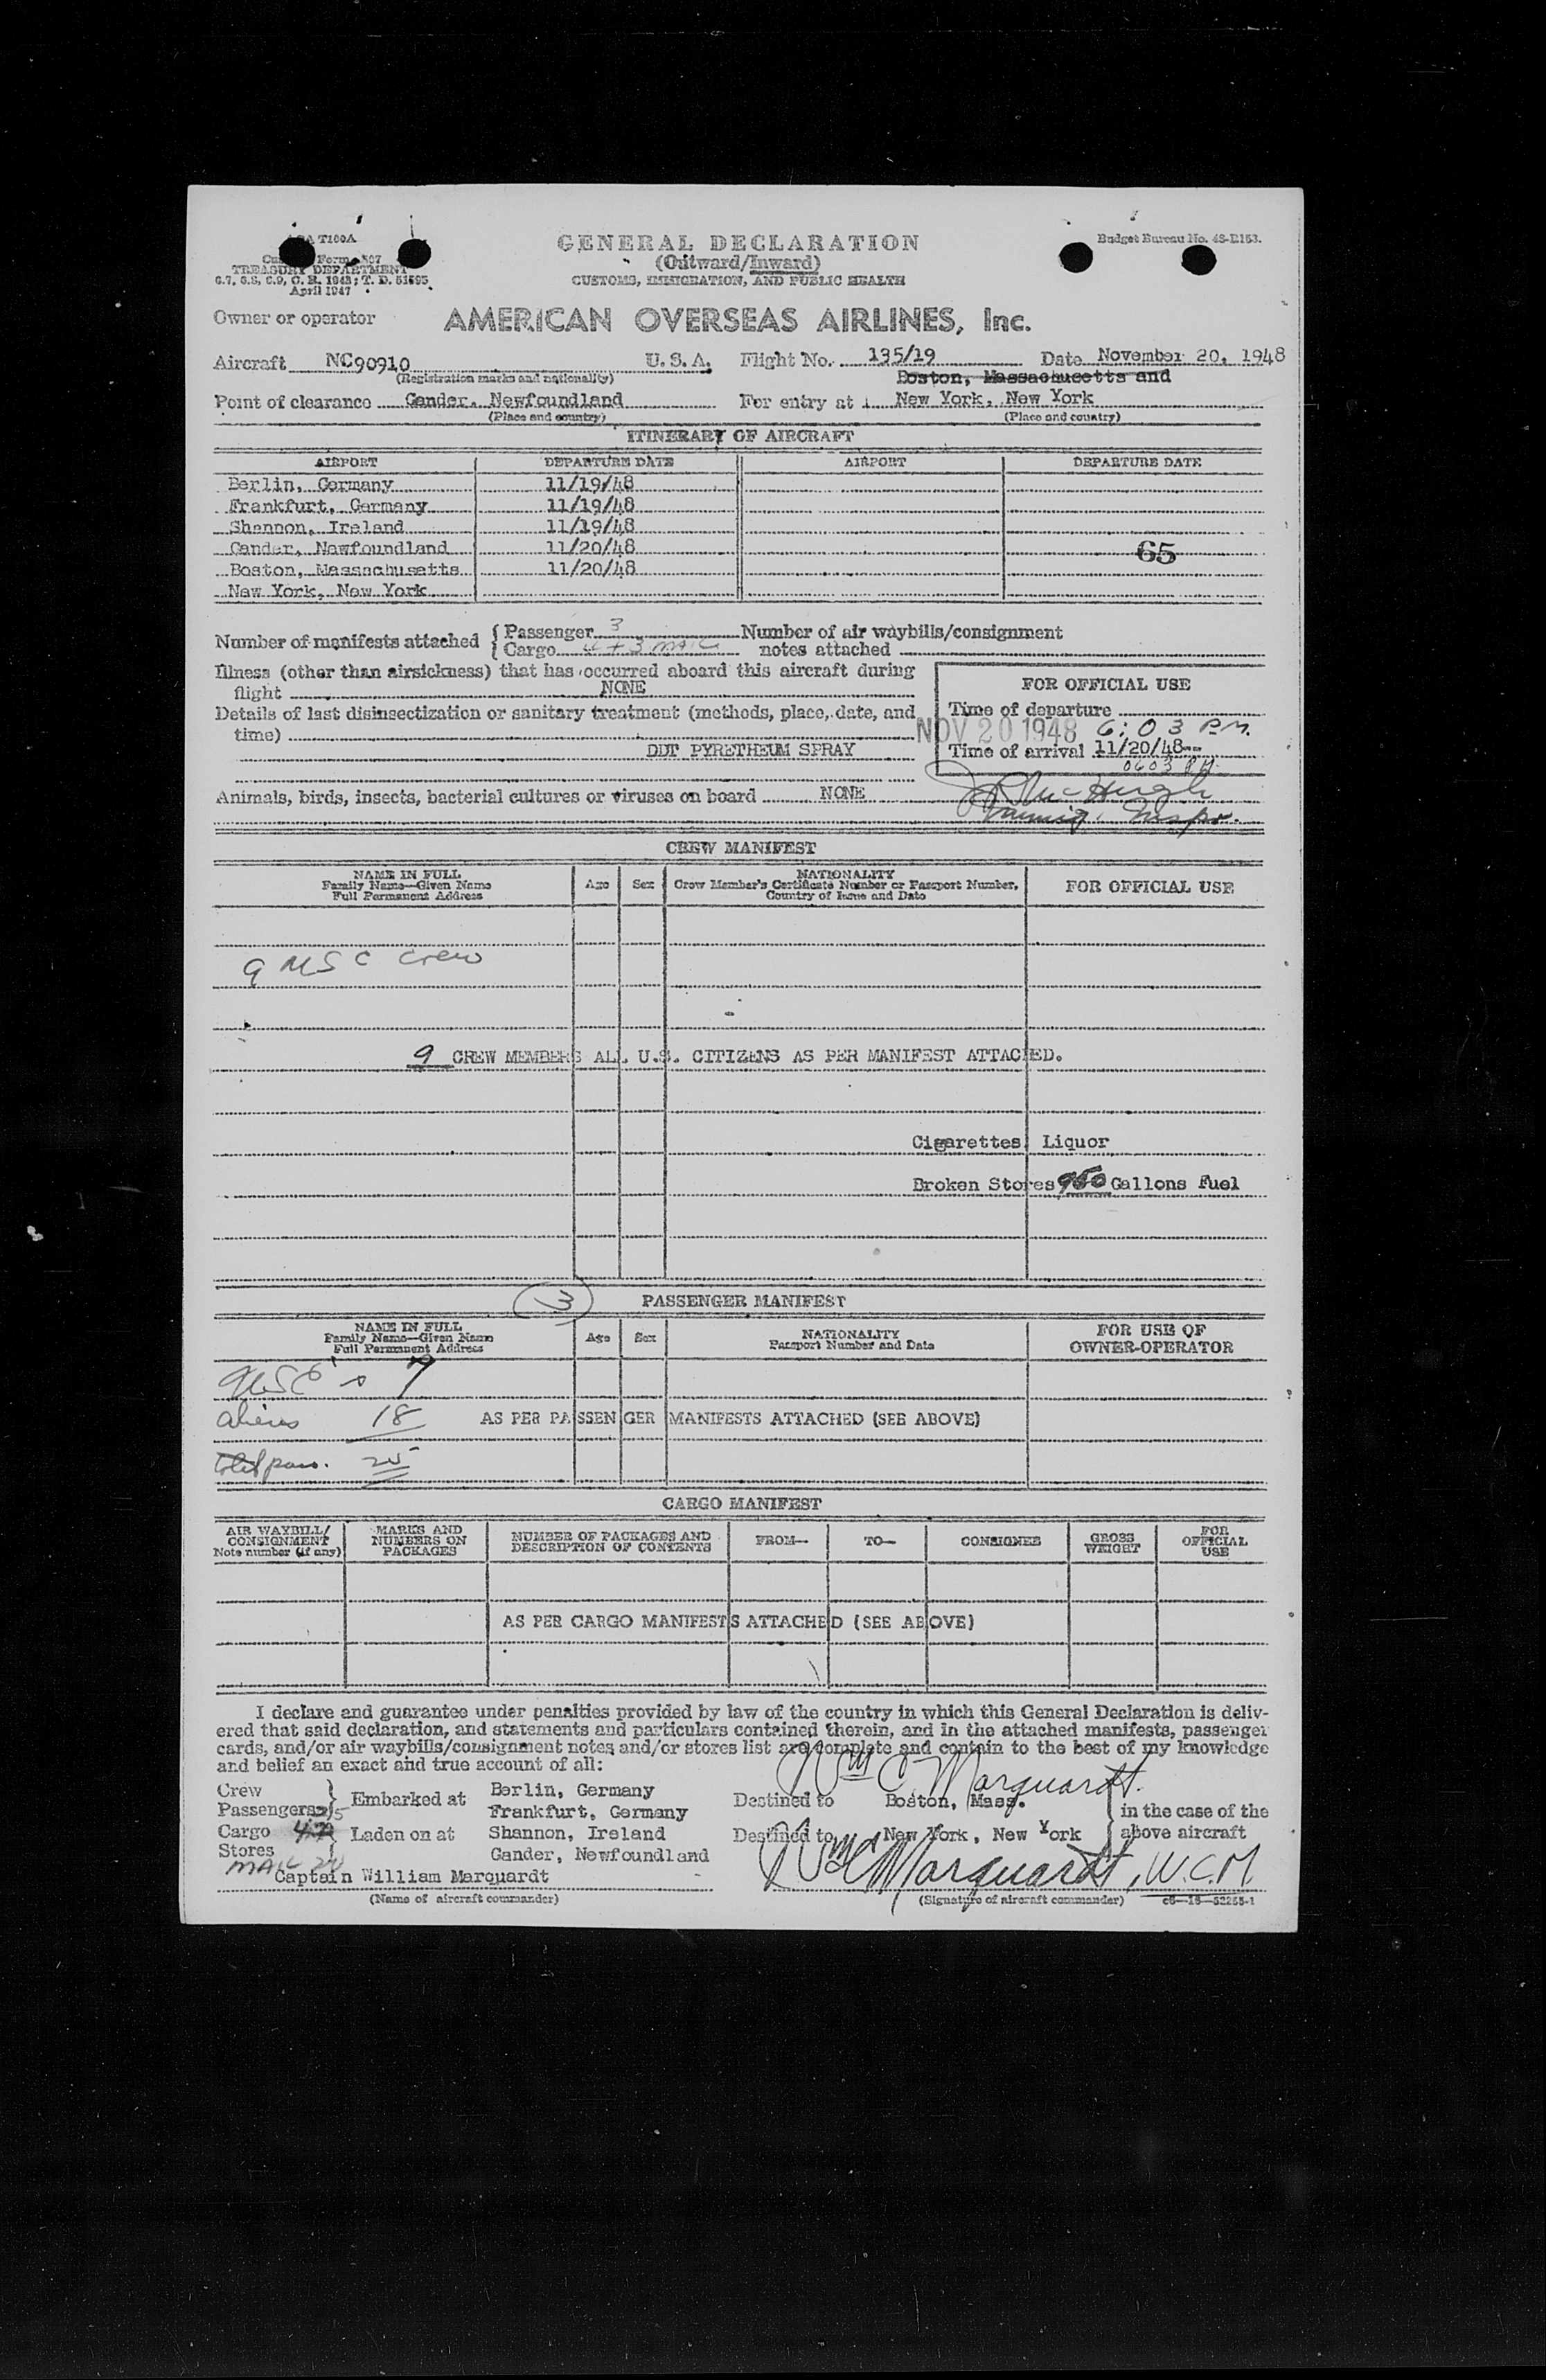 T100A
GENERAL DECLARATION
Budget Bureau No. 48-R153.
Form 507
(Outward/Inward)
TREASURY DEPARTMENT
CUSTOMS, IMMIGRATION, AND PUBLIC HEALTH
April 1947
Owner or operator AMERICAN OVERSEAS AIRLINES, Inc.
Aircraft NC90910 U. S. A. Flight No. 135/19 Date November 20, 1948
(Registration marks and nationality) Boston, Massachusetts and
Point of clearance Gander, Newfoundland For entry at New York, New York
(Place and country) (Place and country)
ITINERARY OF AIRCRAFT
AIRPORT DEPARTURE DATE AIRPORT DEPARTURE DATE
Berlin, Germany 11/19/48
Frankfurt, Germany 11/19/48
Shannon, Ireland 11/19/48
Gander, Newfoundland 11/20/48 65
Boston, Massachusetts 11/20/48
New York, New York
Number of manifests attached Passenger 3 Number of air waybills/consignment
Cargo 4 + 3 MAIL notes attached
Illness (other than airsickness) that has occurred aboard this aircraft during
flight NONE
FOR OFFICIAL USE
Details of last disinsectization or sanitary treatment (methods, place, date, and
time)
DDT PYRETHEUM SPRAY
Time of departure
NOV 20 1948 6:03 P.M.
Time of arrival 11/20/48--
0603 PM
Animals, birds, insects, bacterial cultures or viruses on board NONE
McHugh
Immig. Inspr.
CREW MANIFEST
NAME IN FULL
Family Name—Given Name
Full Permanent Address
Age
Sex
NATIONALITY
Crew Member's Certificate Number or Passport Number,
Country of Issue and Date
FOR OFFICIAL USE
9 USC Crew
9 CREW MEMBERS ALL U.S. CITIZENS AS PER MANIFEST ATTACHED.
Cigarettes Liquor
Broken Stores 950 Gallons Fuel
3
PASSENGER MANIFEST
NAME IN FULL
Family Name—Given Name
Full Permanent Address
Age
Sex
NATIONALITY
Passport Number and Date
FOR USE OF
OWNER-OPERATOR
USC's 7
aliens 18 AS PER PASSENGER MANIFESTS ATTACHED (SEE ABOVE)
Total pass. 25
CARGO MANIFEST
AIR WAYBILL/
CONSIGNMENT
Note number (if any)
MARKS AND
NUMBERS ON
PACKAGES
NUMBER OF PACKAGES AND
DESCRIPTION OF CONTENTS
FROM—
TO—
CONSIGNEE
GROSS
WEIGHT
FOR
OFFICIAL
USE
AS PER CARGO MANIFESTS ATTACHED (SEE ABOVE)
I declare and guarantee under penalties provided by law of the country in which this General Declaration is deliv-
ered that said declaration, and statements and particulars contained therein, and in the attached manifests, passenger
cards, and/or air waybills/consignment notes and/or stores list are complete and contain to the best of my knowledge
and belief an exact and true account of all:
Wm C. Marquardt.
Crew
Passengers 25
Cargo
Stores
MAIL
Embarked at
Laden on at
Berlin, Germany
Frankfurt, Germany
Shannon, Ireland
Gander, Newfoundland
Destined to Boston, Mass.
Destined to New York, New York
in the case of the
above aircraft
Captain William Marquardt
Wm C Marquardt, W.C.M.
(Name of aircraft commander)
(Signature of aircraft commander) c6—16—52255-1